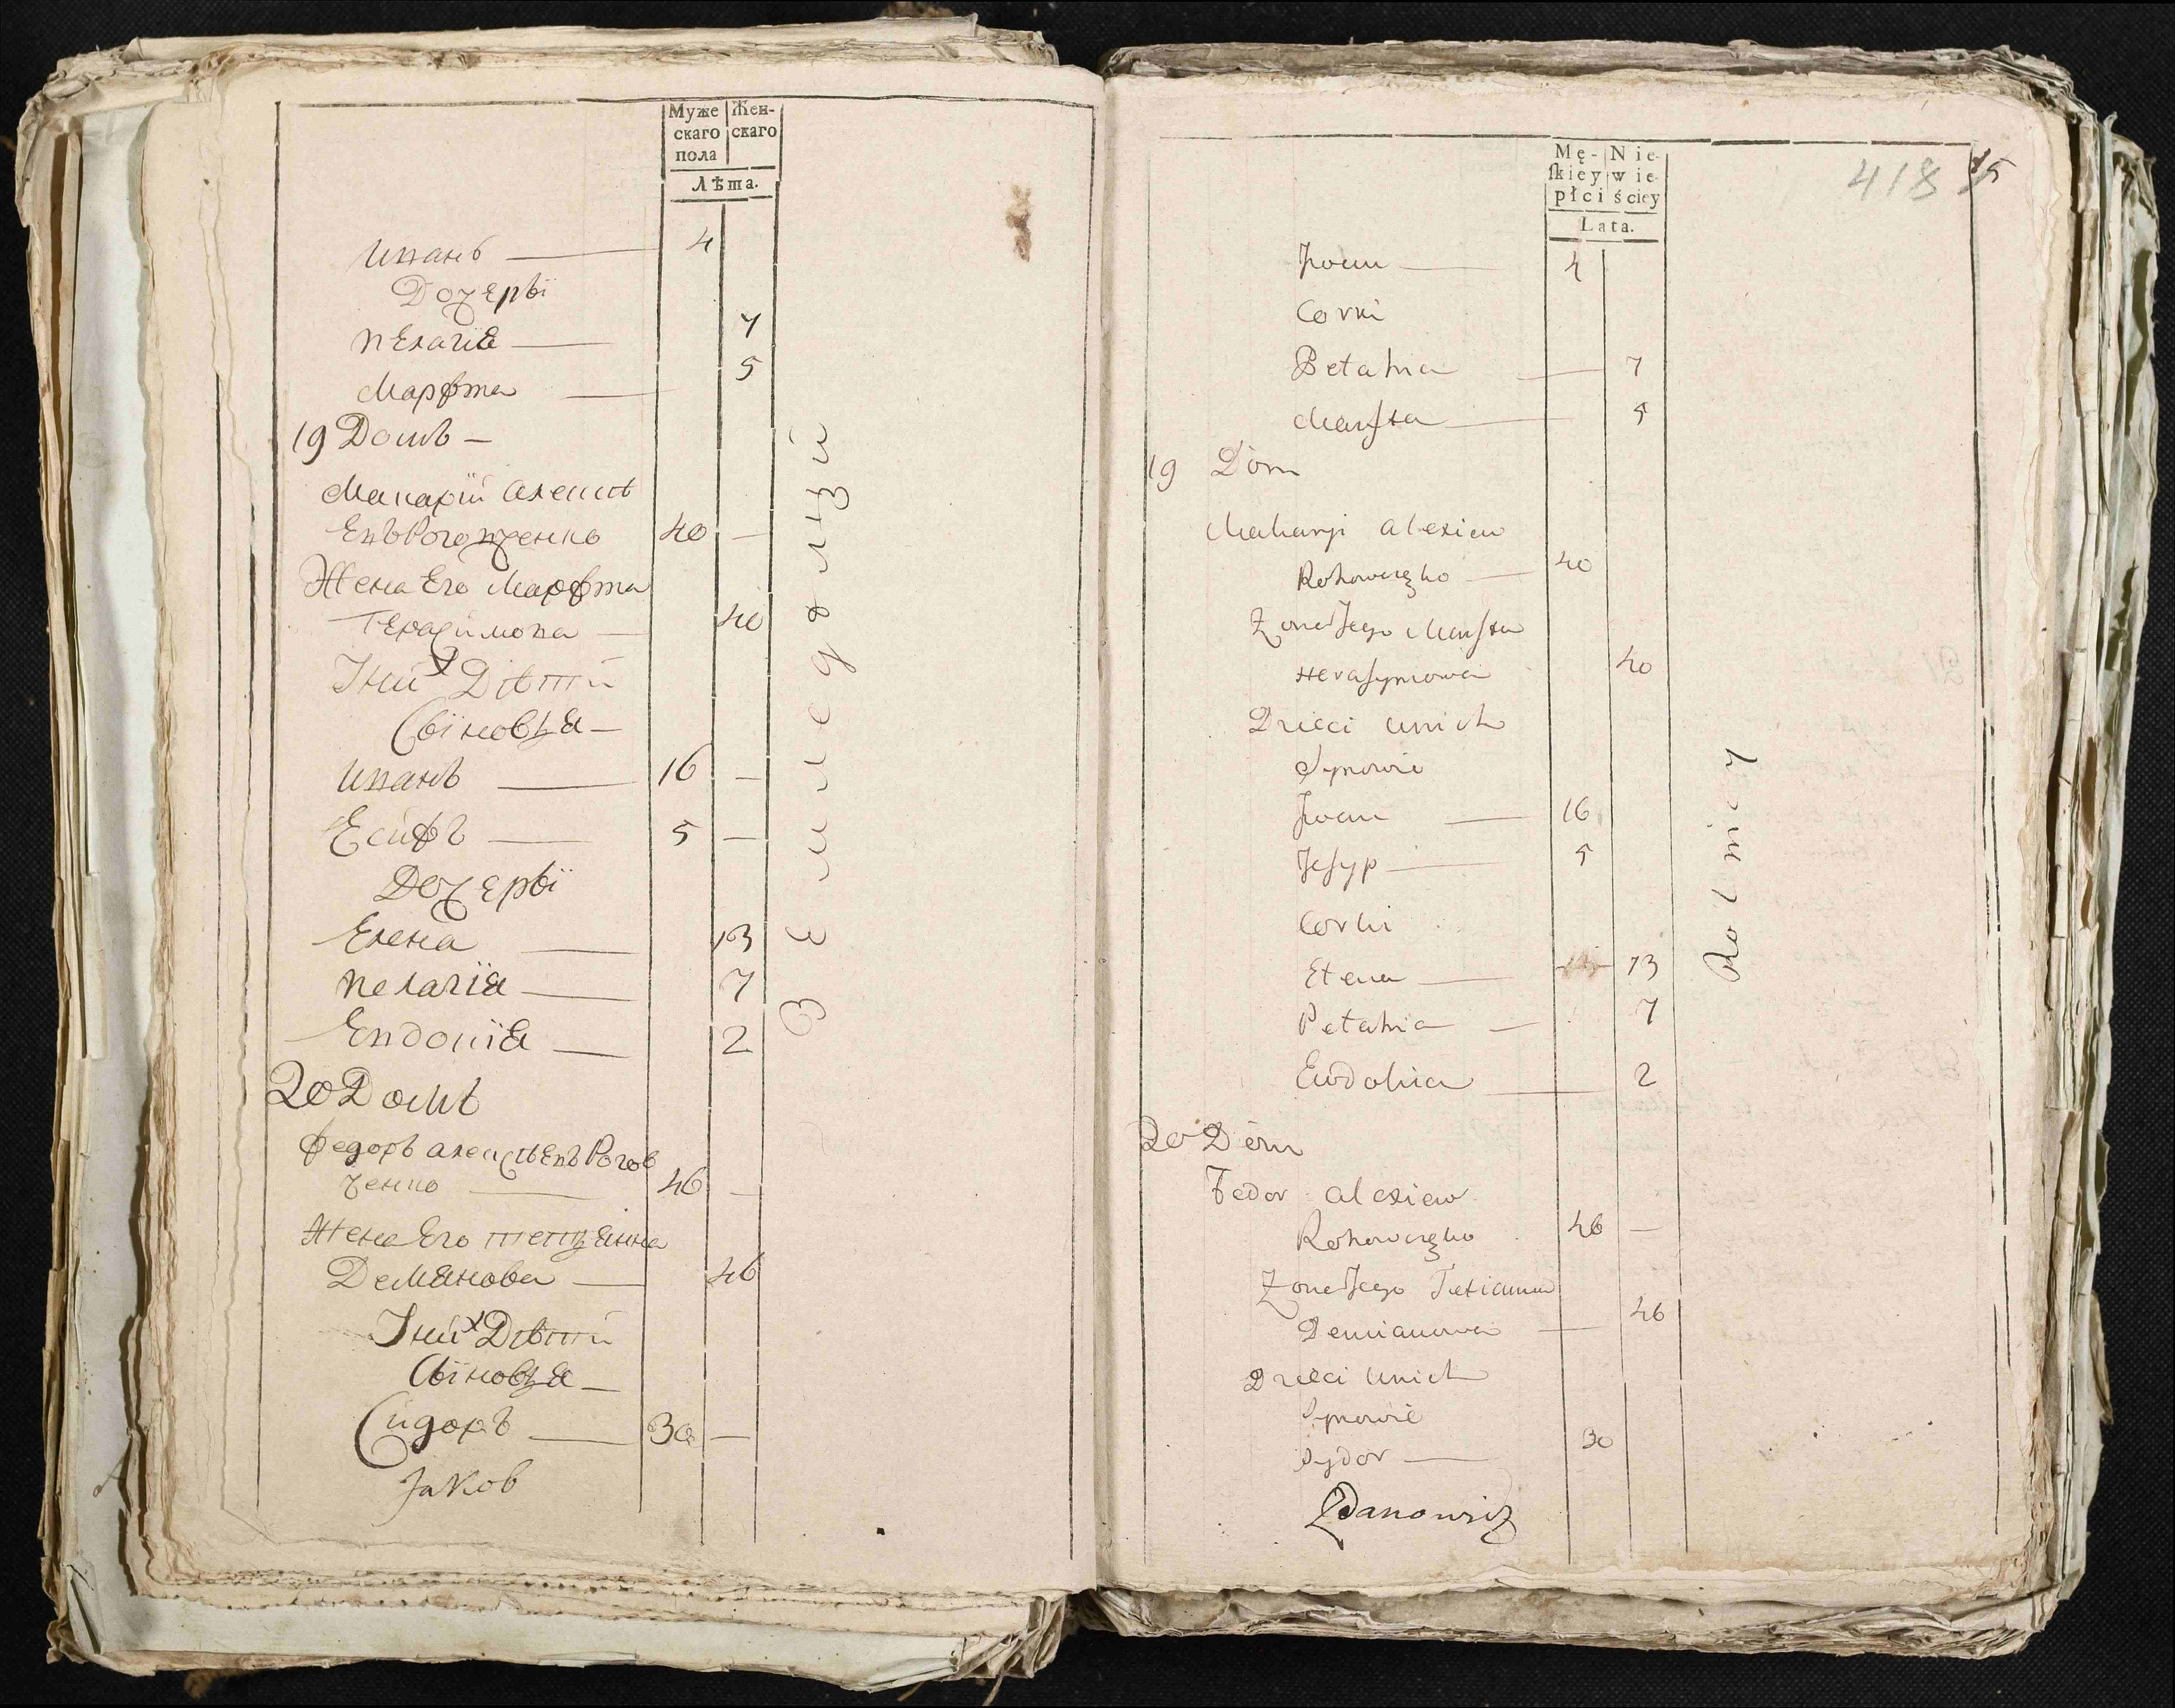 Муже Жен-
скаго скаго
пола
Лѣта.
Иванъ — 4
Дочеръї
Пелагїя — 7
Марфта — 5
19 Домъ —
Макарїй Алексѣ
Евъ Роговченко 40 —
Жена Его Марфта
Герасимова — 40
У нихъ Дѣти
Сыновья —
Иванъ — 16 —
Есипъ — 5 —
Дочеръї
Елена — 13
Пелагїя — 7
Евдокїя — 2
20 Домъ
Федоръ Алексѣевъ Рогов
ченко — 46 —
Жена Его Тетцянна
Демянова — 46
У нихъ Дѣти
Сыновья —
Сидоръ — 30 —
Jakob
Земледѣлцы
Mę- Nie-
skiey wie-
płci ściey
Lata.
418 15
Iwan — 4
Corki
Pelahia — 7
Marfta — 5
19 Dom
Makaryi Alexiew
Rohowczęko — 40
Zona Jego Marfta
Herasymowa 40
Dzieci u nich
Synowie
Iwan — 16
Jesyp — 5
Corki
Elena — 13
Pelahia — 7
Eudokia — 2
20 Dom
Fedor Alexiew
Rohowczęko 46 —
Zona Jego Tetianna
Demianowa — 46
Dzieci u nich
Synowie
Sydor — 30
Zdanowicz
Rolnicy